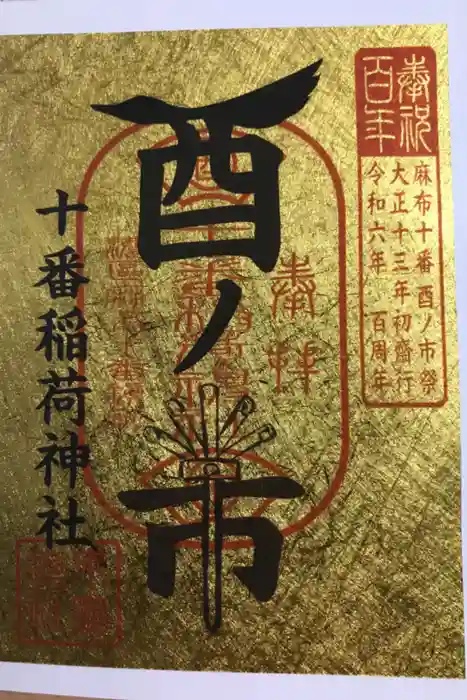 奉祝
百年
麻布十番酉ノ市祭
大正十三年初齋行
令和六年 百周年
奉拝
酉ノ市
十番稲荷神社